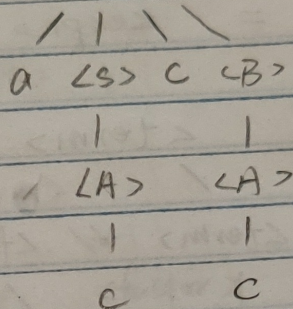 a <S> c <B>
<A> <A>
c c